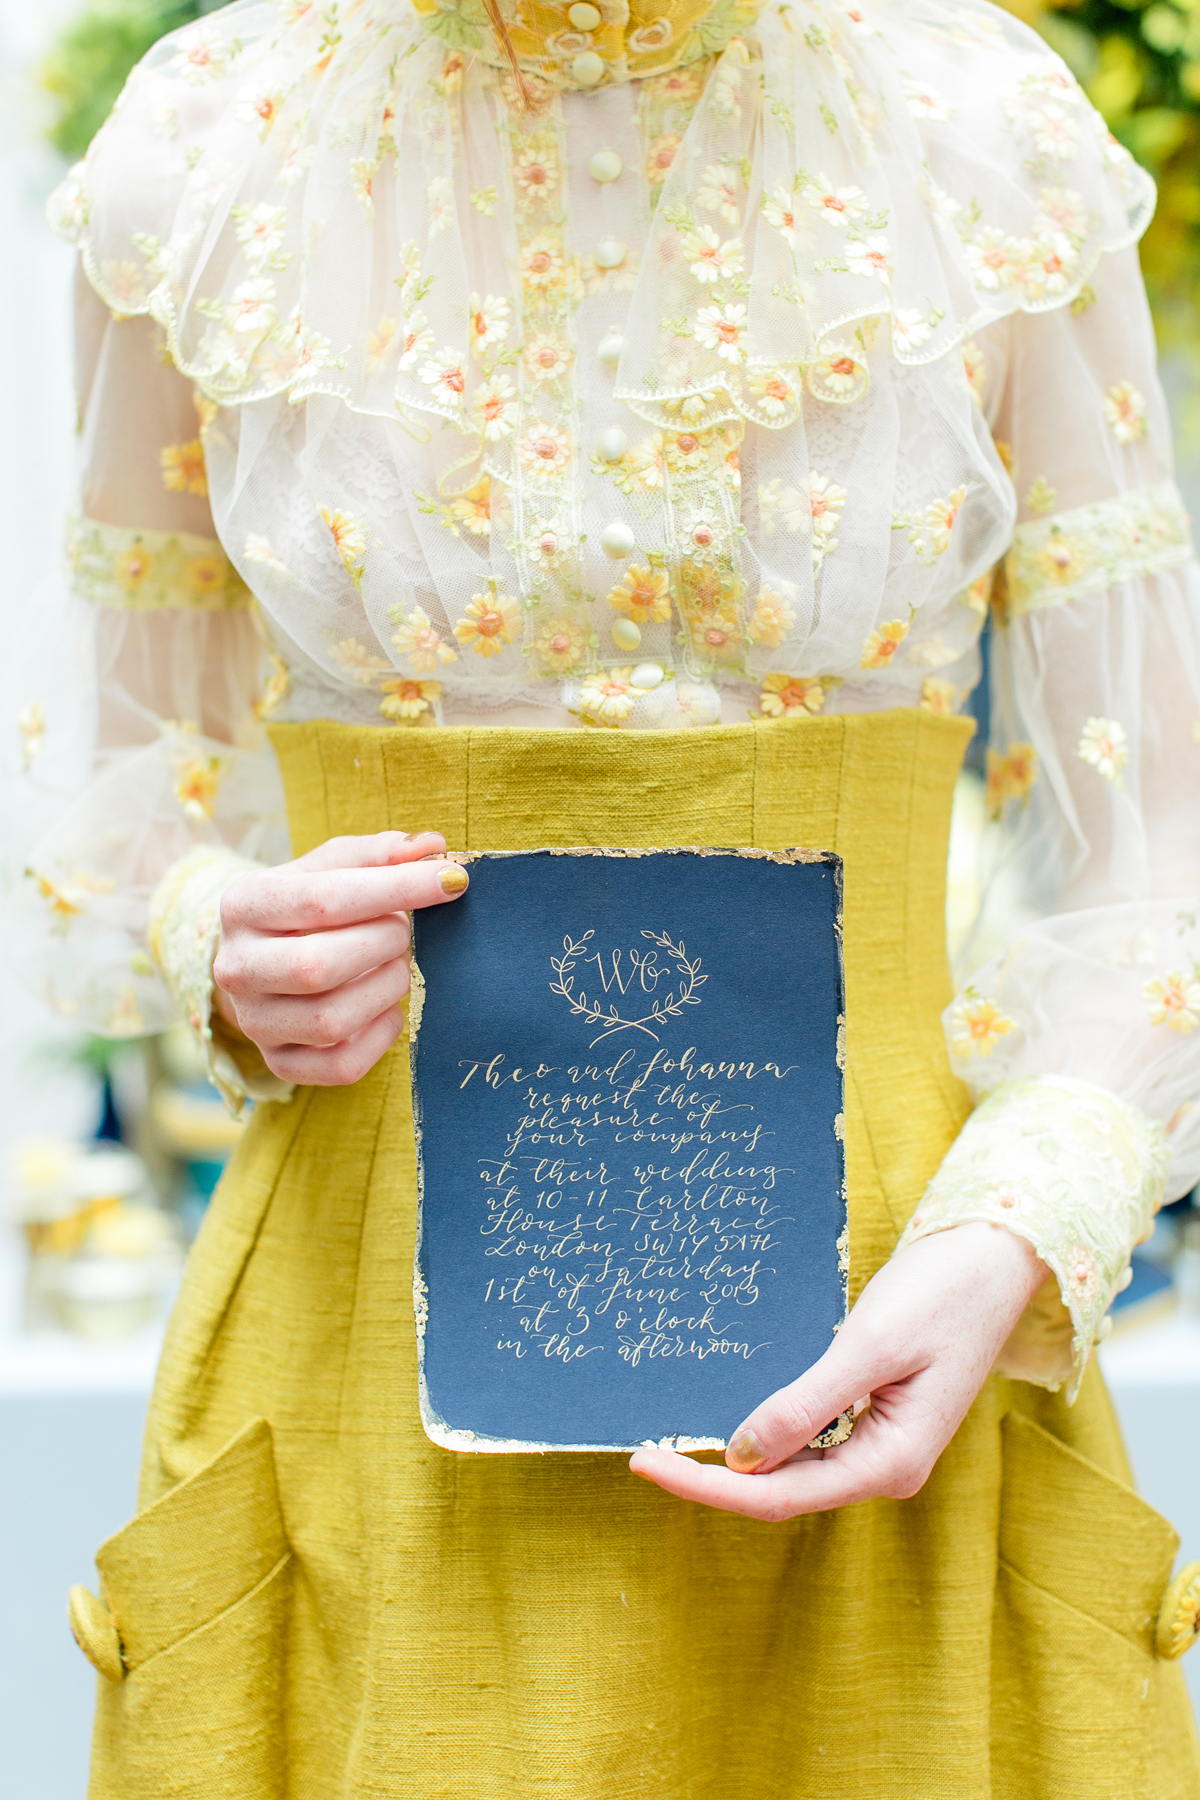 Wb
Theo and Johanna
request the
pleasure of
your company
at their wedding
at 10-11 Carlton
House Terrace
London SW1Y 5AH
on Saturday
1st of June 2019
at 3 o'clock
in the afternoon